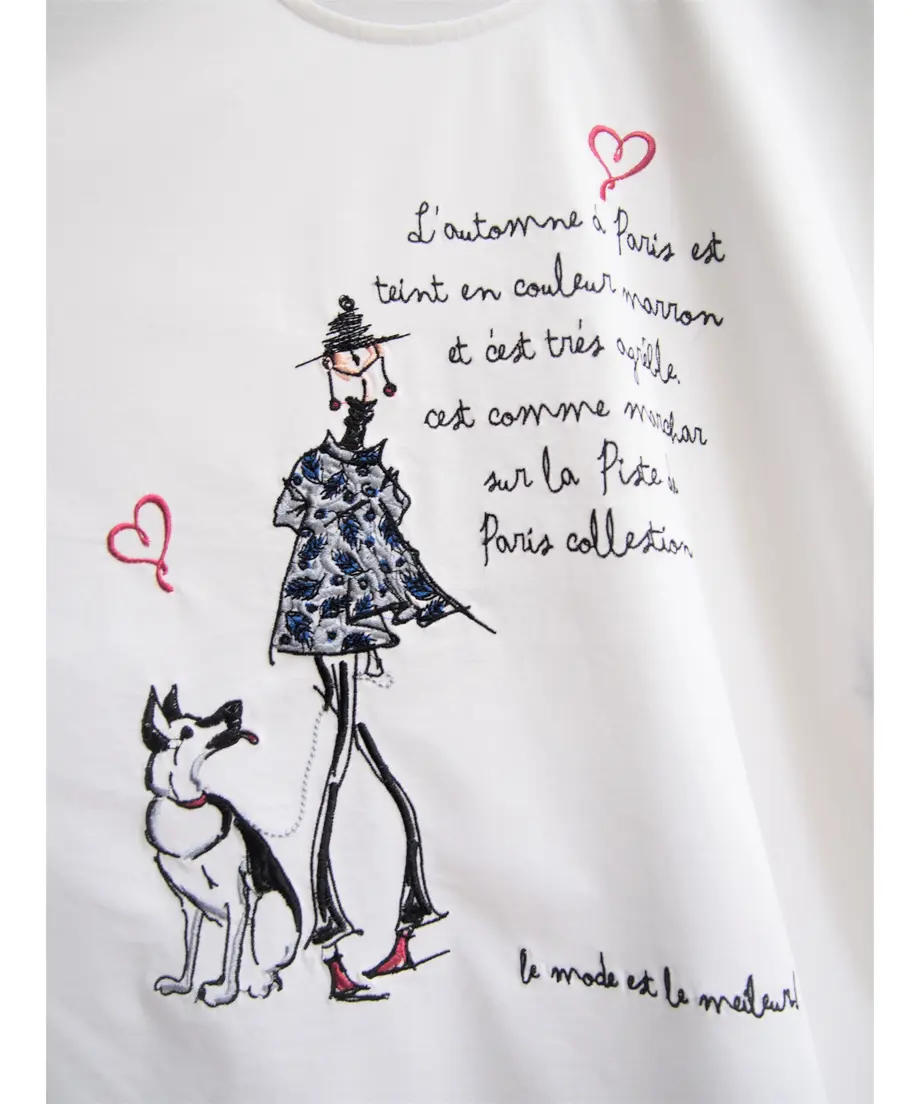 L'automne à Paris est
teint en couleur marron
et c'est trés agrèlle.
cest comme marchar
sur la Piste de
Paris collestion
le mode est le meileur!